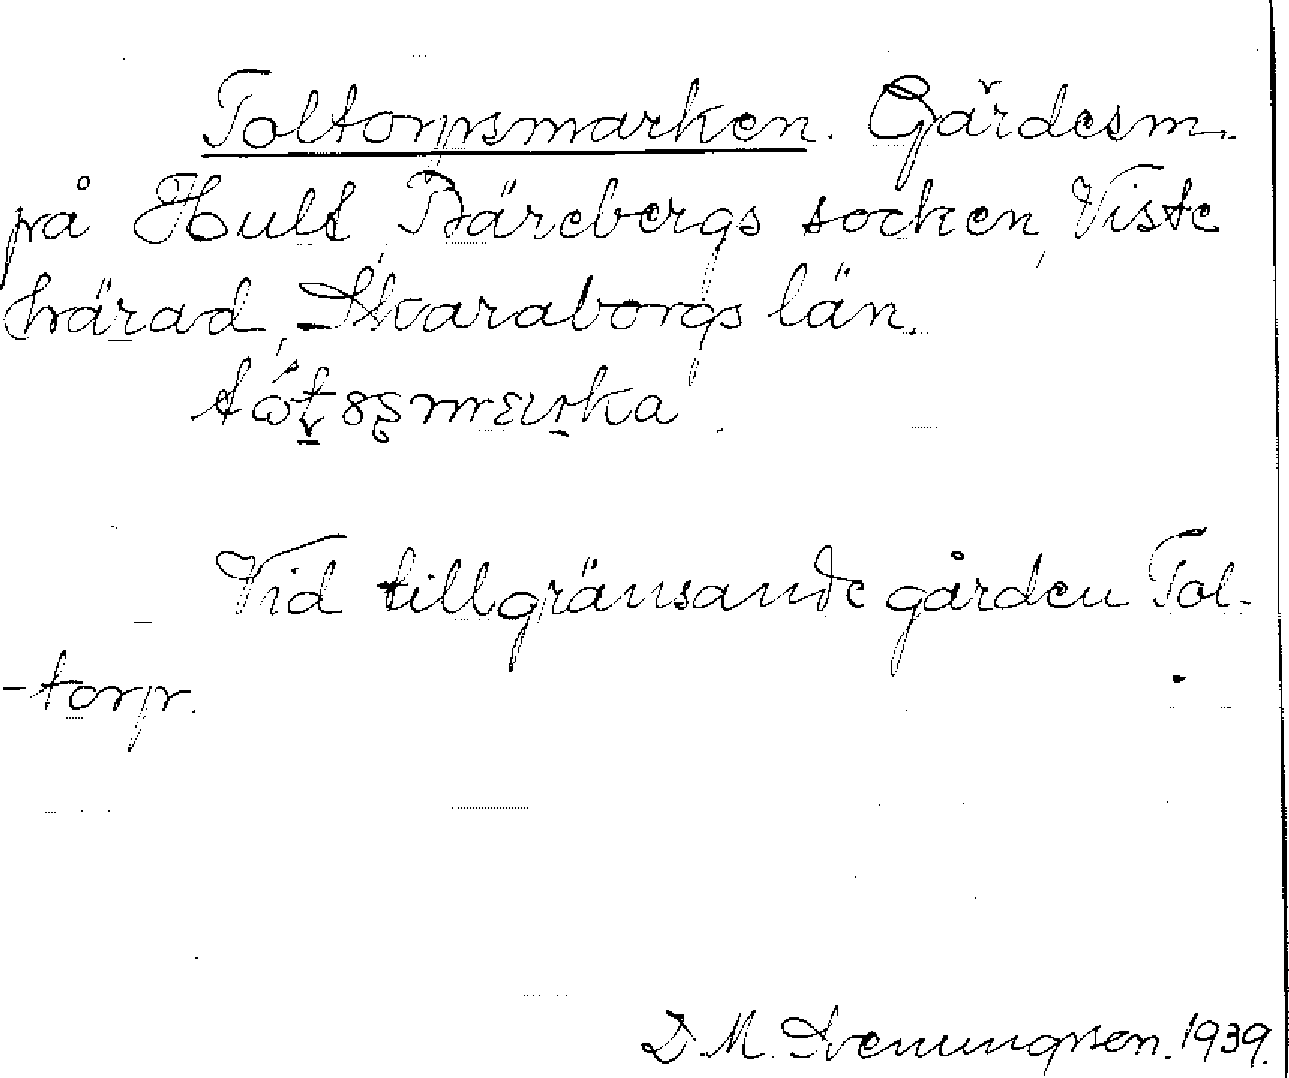 Toltorpsmarken. Gärdesm.
på Hult, Bärebergs socken, Viste
härad, Skaraborgs län.
Vid tillgränsande gården Tol-
-torp.
D.M. Svenungsson. 1939.